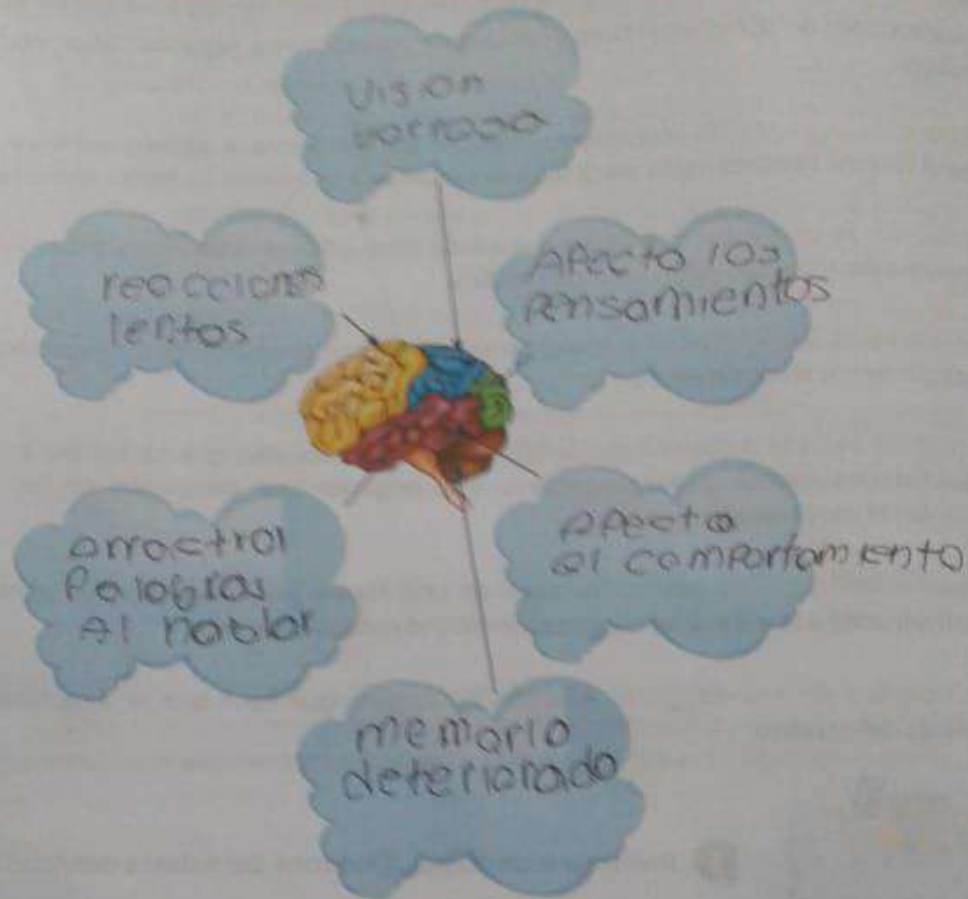 Vision
borrosa
reacciones
lentas
Afecta los
pensamientos
arractral
Palabras
Al hablar
Afecta
al comportamiento
memoria
deteriorada